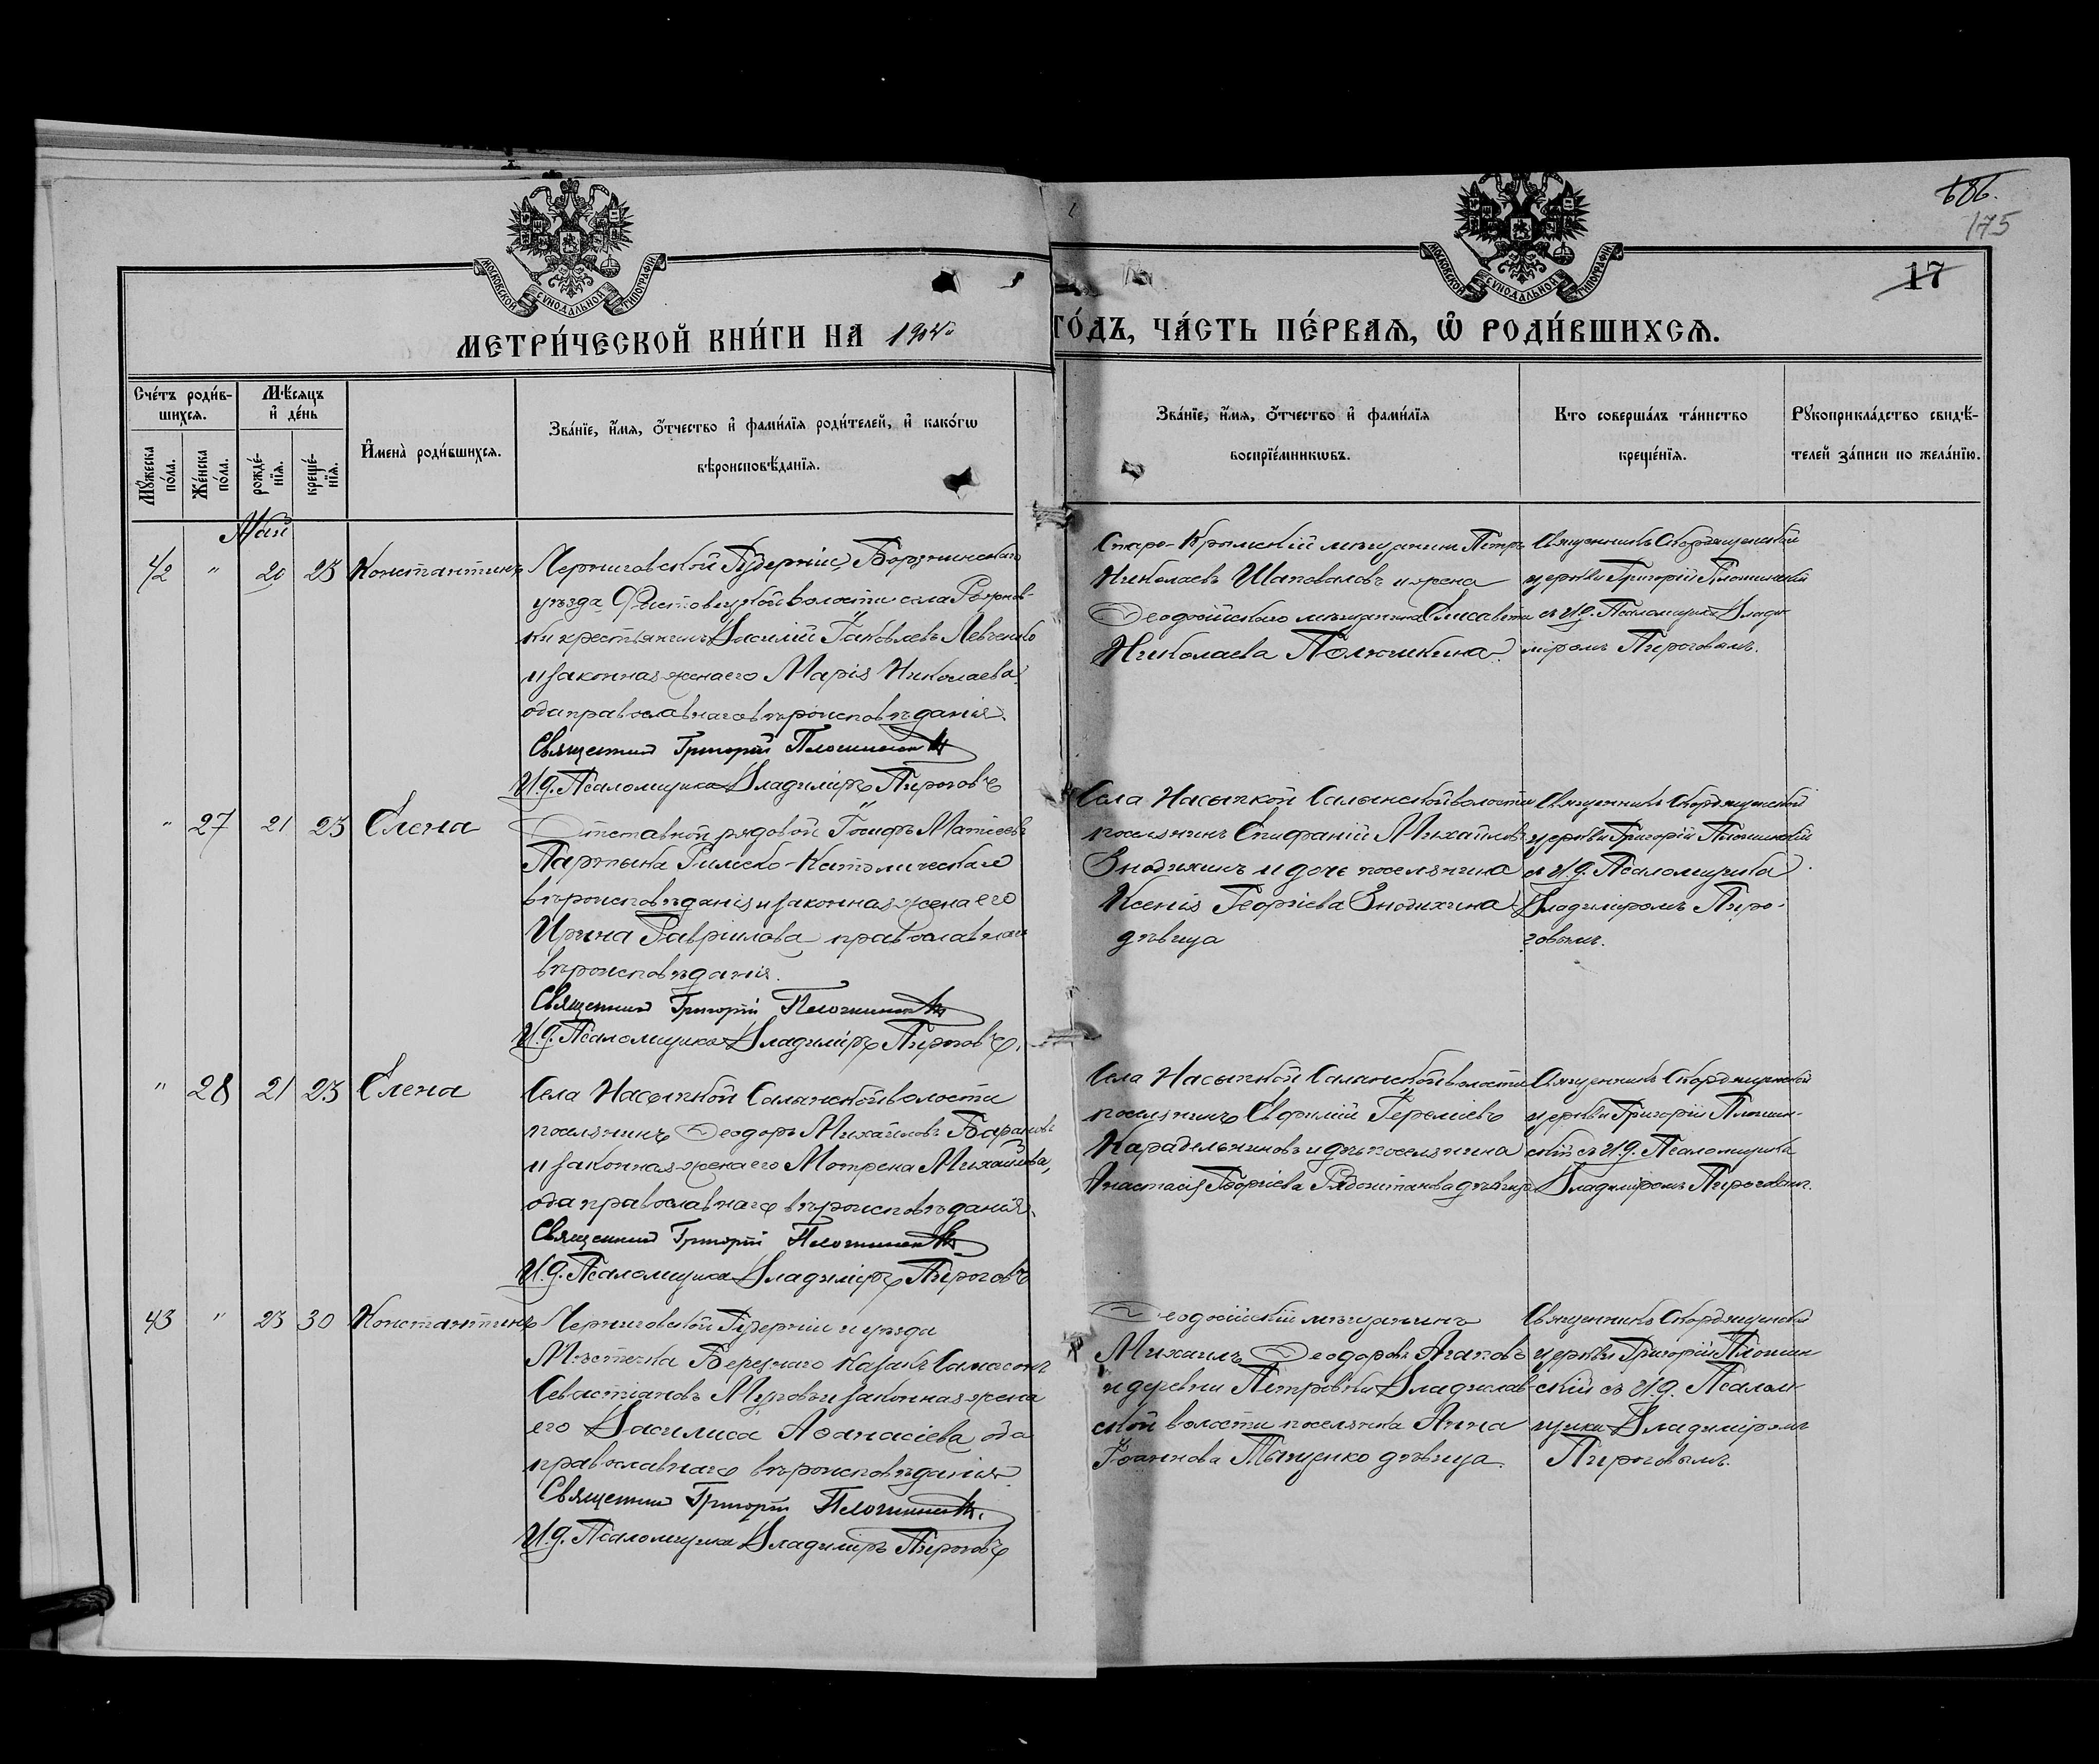 686.
175
17
МОСКОВСКОЙ СѴНОДАЛЬНОЙ ТИПОГРАФІИ
МОСКОВСКОЙ СѴНОДАЛЬНОЙ ТИПОГРАФІИ
МЕТРИ́ЧЕСКОЙ КНИ́ГИ НА 1904й
ГО́ДЪ, ЧА́СТЬ ПЕ́РВАЯ, Ѡ РОДИ́ВШИХСЯ.
Сче́тъ роди́в-
шихся.
Мꙋ́жеска по́ла.
Же́нска по́ла.
Мѣ́сяцъ
и҆ де́нь
рожде́-нїя.
креще́-нїя.
И҆мена̀ роди́вшихся.
Зва́нїе, и҆́мя, ѻ҆́тчество и҆ фами́лїя роди́телей, и҆ како́гѡ
вѣроисповѣ́данїя.
Зва́нїе, и҆́мя, ѻ҆́тчество и҆ фами́лїя
воспрїе́мникѡвъ.
Кто соверша́лъ та́инство
креще́нїя.
Рꙋкоприкла́дство свидѣ́-
телей за́писи по жела́нїю.
Май
42 " 20 23 Константинъ
Черниговской Губерніи, Борзнинскаго
уѣзда волости села
ки крестьянинъ Василій Іаковлевъ Левченко
и законная жена его Марія Николаева,
оба православнаго вѣроисповѣданія.
Священник Григорій Плошинскій
И.д. Псаломщика Владиміръ Пироговъ
Старо-Крымскій мѣщанинъ Петръ
Николаевъ Шаповаловъ и жена
Ѳеодосійскаго мѣщанина Елисавета
Николаева Полюшкина.
Священникъ Скорбященской
церкви Григорій Плошинскій
съ И.д. Псаломщика Влади-
міромъ Пироговымъ.
" 27 21 23 Елена
Отставной рядовой Іосифъ Матѳеевъ
Римско-Католическаго
вѣроисповѣданія и законная жена его
Ирина Гавріилова православнаго
вѣроисповѣданія.
Священник Григорій Плошинскій
И.д. Псаломщика Владиміръ Пироговъ.
Села Насыпкой Салынской волости
поселянинъ Епифаній Михайловъ
Знобихинъ и дочь поселянина
Ксенія Георгіева Знобихина
дѣвица
Священникъ Скорбященской
церкви Григорій Плошинскій
съ И.д. Псаломщика
Владиміромъ Пиро-
говымъ.
" 28 21 23 Елена
Села Насыпкой Салынской волости
поселянинъ Ѳеодоръ Михайловъ Барановъ
и законная жена его Мотрона Михайлова,
оба православнаго вѣроисповѣданія.
Священник Григорій Плошинскій
И.д. Псаломщика Владиміръ Пироговъ
Села Насыпкой Салынской волости
поселянинъ Евѳимій Іереміевъ
и дочь поселянина
Анастасія Георгіева дѣвица
Священникъ Скорбященской
церкви Григорій Плошин-
скій съ И.д. Псаломщика
Владиміромъ Пироговым.
43 " 23 30 Константинъ
Черниговской Губерніи и уѣзда
Мѣстечка Березнаго казакъ Сампсонъ
Севастіановъ и законная жена
его Василиса Аѳанасіева оба
православнаго вѣроисповѣданія
Священник Григорій Плошинскій.
И.д. Псаломщика Владиміръ Пироговъ
Ѳеодосійскій мѣщанинъ
Михаилъ Ѳеодоровъ Агаповъ
и деревни Петровки Владислав-
ской волости поселянка Анна
Іоаннова дѣвица.
Священникъ Скорбященской
церкви Григорій Плошин
скій съ И.д. Псалом-
щика Владиміромъ
Пироговымъ.